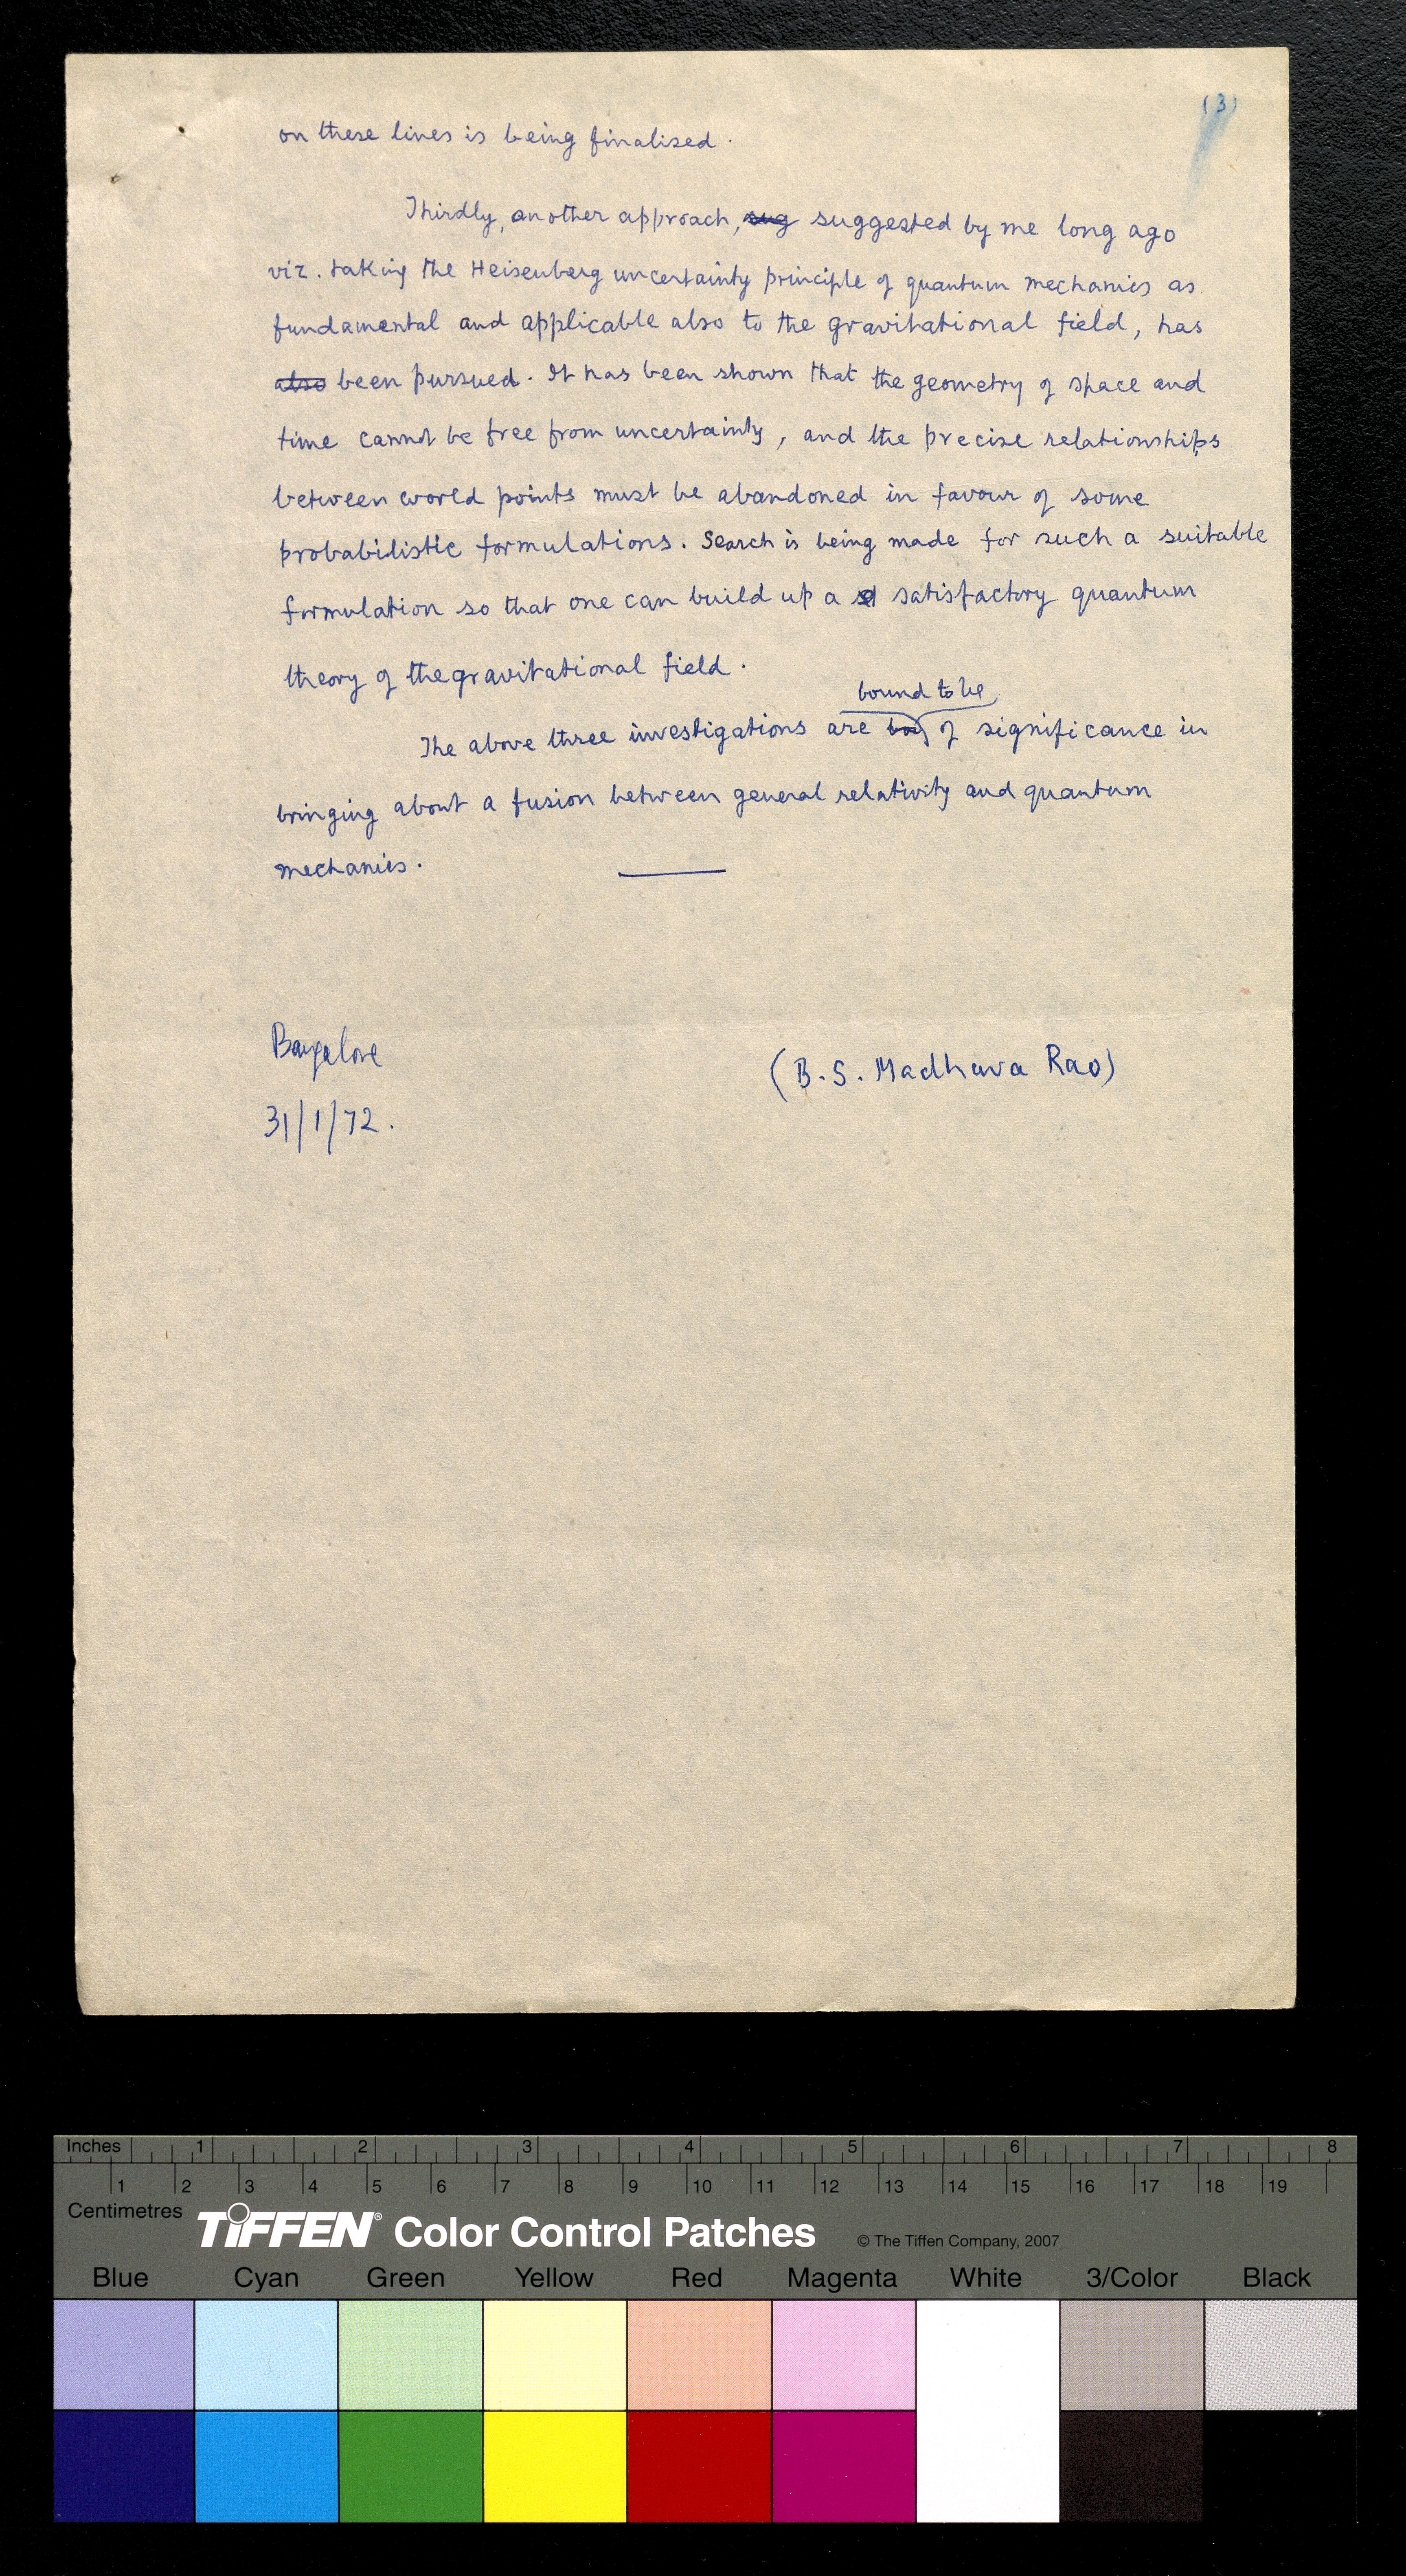 (3)
on these lines is being finalised.
Thirdly, another approach, sug suggested by me long ago
viz. taking the Heisenberg uncertainty principle of quantum mechanics as
fundamental and applicable also to the gravitational field, has
also been pursued. It has been shown that the geometry of space and
time cannot be free from uncertainty, and the precise relationships
between world points must be abandoned in favour of some
probabilistic formulations. Search is being made for such a suitable
formulation so that one can build up a satisfactory quantum
theory of the gravitational field.
bound to be
The above three investigations are of significance in
bringing about a fusion between general relativity and quantum
mechanics.
Bangalore
(B. S. Madhava Rao)
31/1/72.
Inches 1 2 3 4 5 6 7 8
1 2 3 4 5 6 7 8 9 10 11 12 13 14 15 16 17 18 19
Centimetres
TIFFEN® Color Control Patches © The Tiffen Company, 2007
Blue Cyan Green Yellow Red Magenta White 3/Color Black